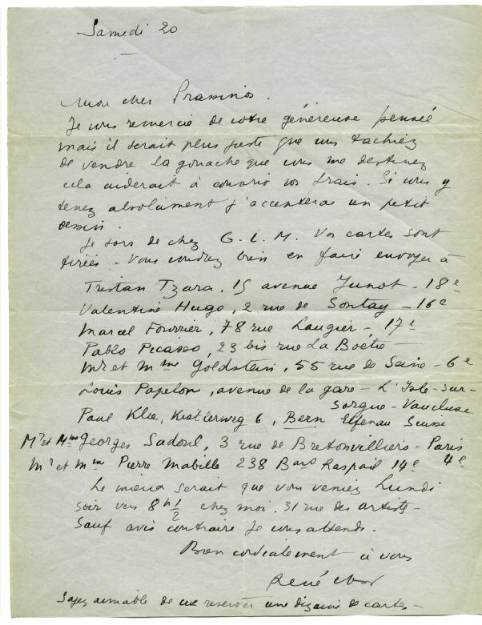 Samedi 20
Mon cher Prassinos.
Je vous remercie de votre généreuse pensée
mais il serait plus juste que vous tachiez
de vendre la gouache que vous me destinez
cela aiderait à couvrir vos frais. Si vous y
tenez absolument j'accepterai un petit
dessin.
Je sors de chez G.L.M. Vos cartes sont
tirées - Vous voudrez bien en faire envoyer à
Tristan Tzara, 15 avenue Junot - 18e
Valentine Hugo, 2 rue de Sontay - 16e
Marcel Fourrier, 78 rue Laugier - 17e
Pablo Picasso, 23 bis rue La Boétie -
Mr et Mme Goldstain, 55 rue de Seine - 6e
Louis Papelon, avenue de la gare - L'Isle-sur-
Sorgue - Vaucluse
Paul Klee, 6, Bern Elfenau Suisse
Mr et Mme Georges Sadoul, 3 rue de Bretonvilliers - Paris
4e
Mr et Mme Pierre Mabille 238 Bard Raspail 14e
Le mieux serait que vous veniez Lundi
soir vers 8h 1/2 chez moi. 31 rue des artistes -
Sauf avis contraire je vous attends.
Bien cordialement à vous
René Char
Soyez aimable de me réserver une dizaine de cartes -